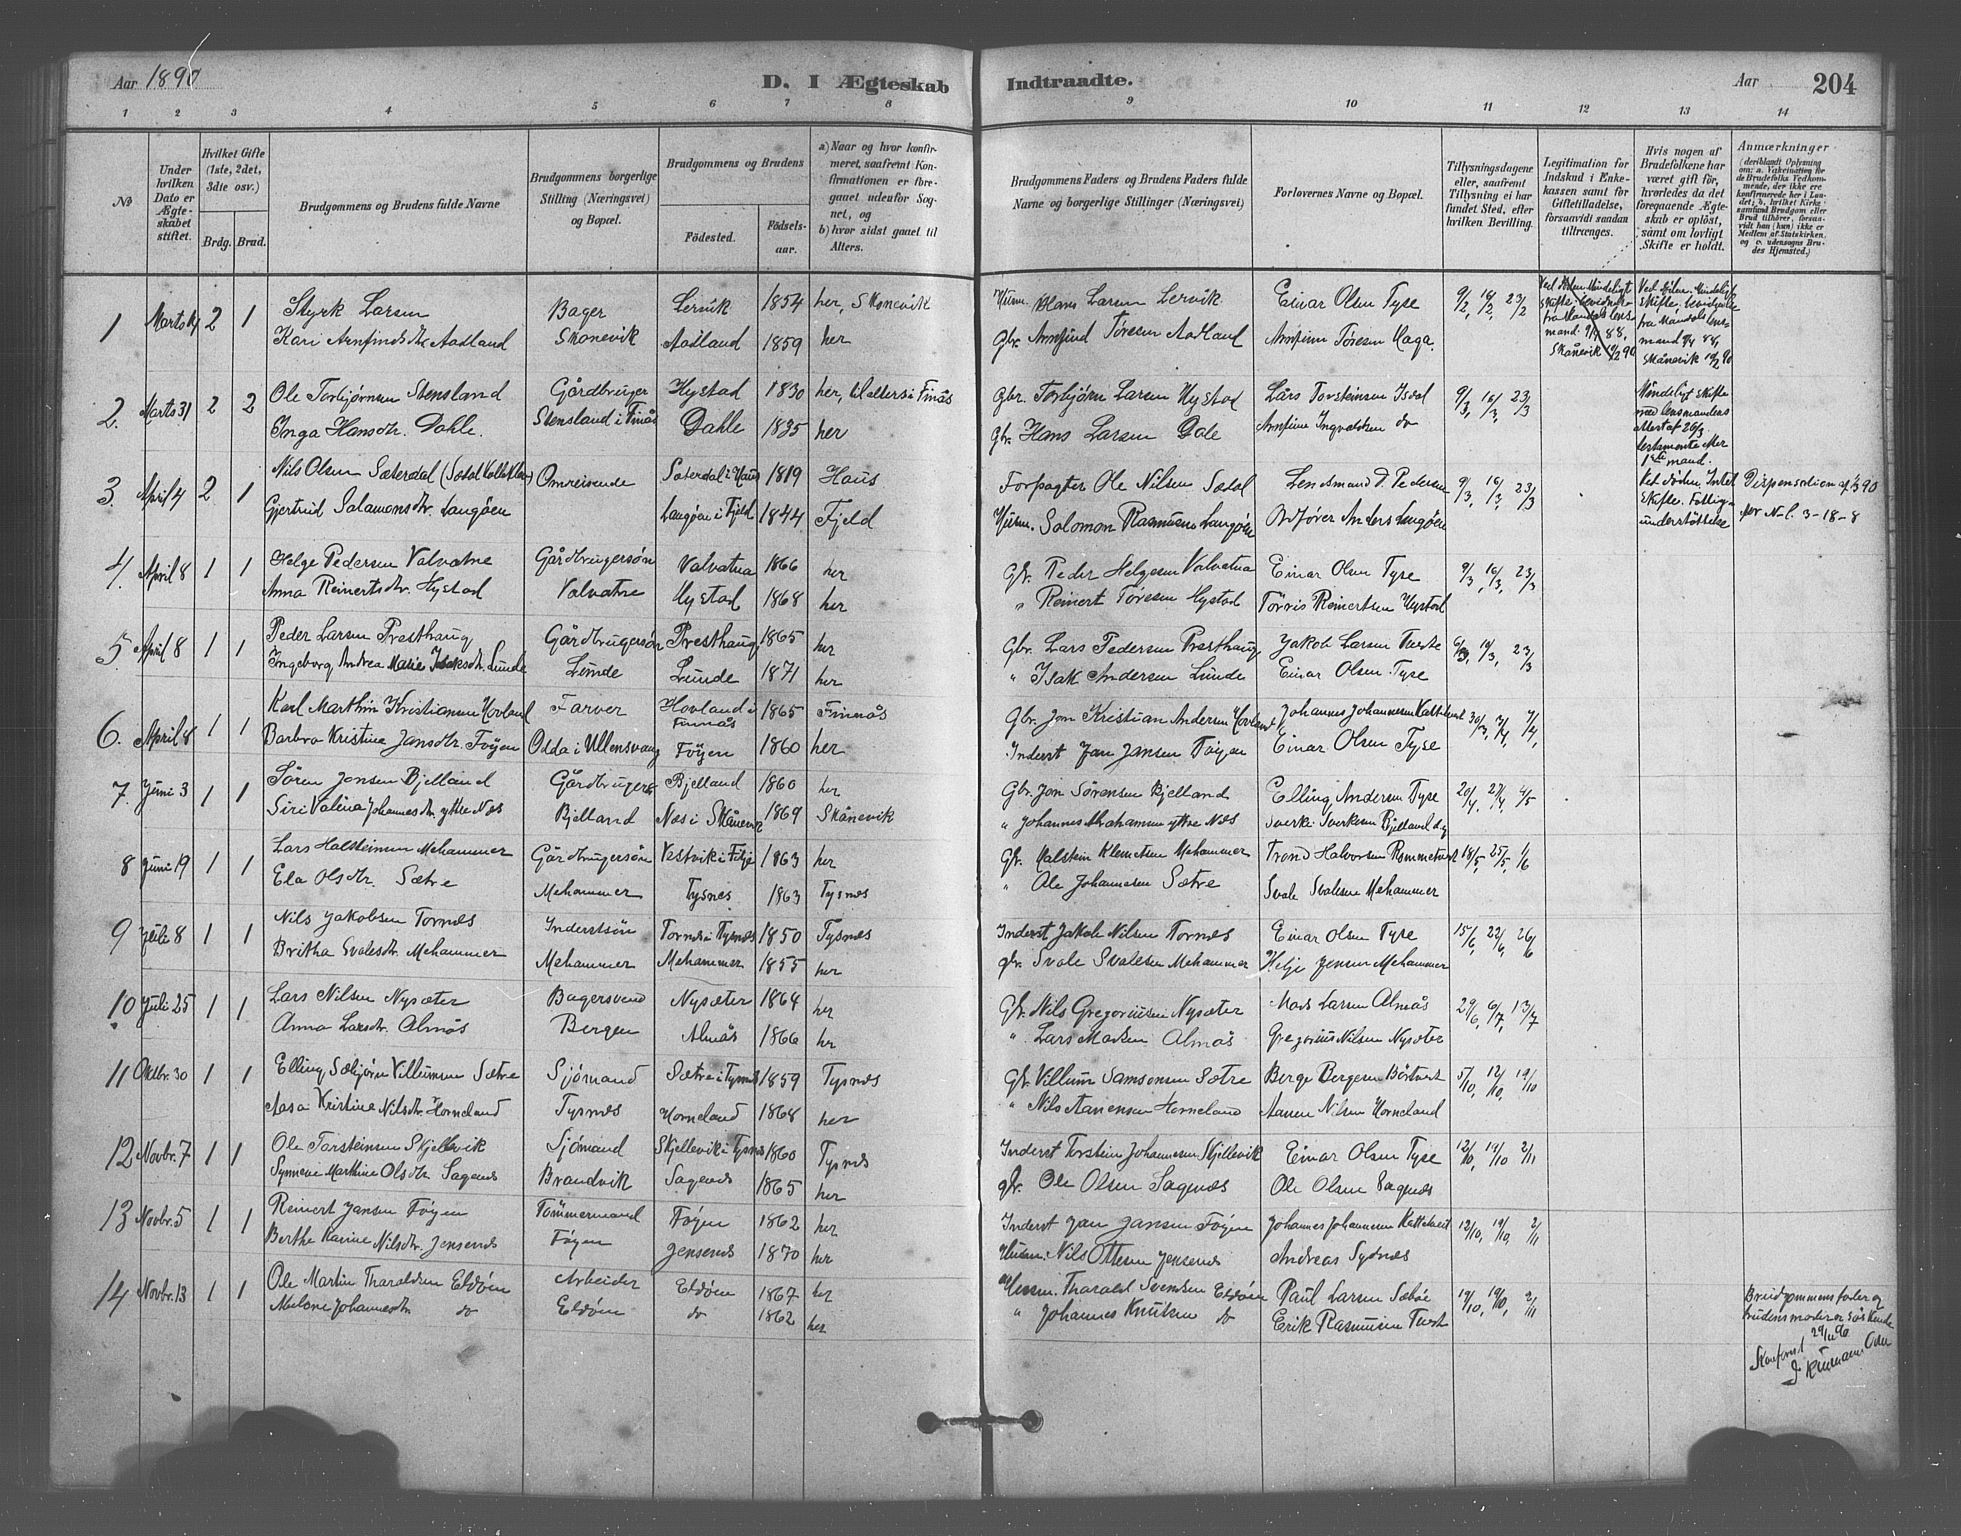 Aar 1890 D. I Ægteskab Indtraadte. Aar 204
1 2 3 4 5 6 7 8 9 10 11 12 13 14
№
Under hvilken Dato er Ægteskabet stiftet.
Hvilket Gifte (1ste, 2det, 3dte osv.)
Brdg. Brud.
Brudgommens og Brudens fulde Navne
Brudgommens borgerlige Stilling (Næringsvei) og Bopæl.
Brudgommens og Brudens
Fødested. Fødselsaar.
a) Naar og hvor konfirmeret, saafremt Konfirmationen er foregaaet udenfor Sognet, og
b) hvor sidst gaaet til Alters.
Brudgommens Faders og Brudens Faders fulde Navne og borgerlige Stillinger (Næringsvei)
Forlovernes Navne og Bopæl.
Tillysningsdagene eller, saafremt Tillysning ei har fundet Sted, efter hvilken Bevilling.
Legitimation for Indskud i Enkekassen samt for Giftetilladelse, forsaavidt saadan tiltrænges.
Hvis nogen af Brudefolkene har været gift før, hvorledes da det foregaaende Ægteskab er opløst, samt om lovligt Skifte er holdt.
Anmærkninger
1 Marts 2 1 Styrk Larsen Bager Lervik 1854 her, Skonevik Husm. Hans Larsen Lervik Einar Olsen Tyse 9/2, 16/2, 23/2
Kari Arnfindsdtr. Aadland Skonevik Aadland 1859 her Gbr. Arnfind Tøresen Aadland Arnfinn Tøresen Haga.
2. Marts 31 2 2 Ole Torbjørnsen Stensland Gårdbruger Hystad 1830 her, til alters i Finås Gbr. Torbjørn Larsen Hystad Lars Torsteinsen Isdal 9/3, 16/3, 23/3
Inga Hansdtr. Dahle. Stensland i Finås Dahle 1835 her Gbr. Hans Larsen Dale Arnfinn Ingvaldsen do
3. April 4 2 1 Nils Olsen Sæterdal Omreisende Sæterdal i Haus 1819 Haus Forpagter Ole Nilsen Sædal Lensmand D. Pedersen 9/3, 16/3, 23/3
Gjertrud Salamonsdtr. Langøen Langøen i Fjeld 1844 Fjeld Husm. Solomon Rasmusen Langøen Ordfører Anders Langøen
4. April 8 1 1 Helge Pedersen Valvatne Gårdbrugersøn Valvatna 1866 her Gbr. Peder Helgesen Valvatna Einar Olsen Tyse 9/3, 16/3, 23/3
Anna Reinertsdtr. Hystad Valvatne Hystad 1868 her " Reinert Tøresen Hystad Tørris Reinertsen Hystad
5. April 8 1 1 Peder Larsen Presthaug Gårdbrugersøn Presthaug 1865 her Gbr. Lars Pedersen Presthaug Jakob Larsen Tveite 16/3, 23/3
Ingeborg Andrea Marie Isaksdtr. Lunde Lunde Lunde 1871 her " Isak Andersen Lunde Einar Olsen Tyse
6. April 8 1 1 Karl Marthin Kristiansen Hovland Farver Hovland i Finnås 1865 Finnås Gbr. Jon Kristian Andersen Hovland Johannes Johannesen Kattetveit 30/3, 3/4, 7/4,
Barbra Kristine Jansdtr. Føyen Odda i Ullensvang Føyen 1860 her Inderst Jan Jansen Føyen Einar Olsen Tyse
7 Juni 3 1 1 Søren Jonsen Bjelland Gårdbruger Bjelland 1860 her Gbr. Jon Sørensen Bjelland Elling Andersen Tyse 20/4, 27/4, 4/5
Siri Valina Johannesdtr. ytre Næs Bjelland Næs i Skånevik 1869 Skånevik " Johannes Abrahamsen ytre Næs Sverki Sverkesen Bjelland
8 Juni 19 1 1 Lars Halsteinsen Mehammer Gårdbrugersøn Vestvik i Fitje 1863 her Gbr. Halstein Klemetsen Mehammer Trond Halvorsen Rommetveit 18/5, 25/5, 1/6
Ela Olsdtr. Sætre Mehammer Tysnes 1863 Tysnes " Ole Johannesen Sætre Svale Svalesen Mehammer
9 Juli 8 1 1 Nils Jakobsen Tornes Inderstsøn Tornes i Tysnes 1850 Tysnes Inderst Jakob Nilsen Tornes Einar Olsen Tyse 15/6, 22/6, 26/6
Britha Svalesdtr. Mehammer Mehammer Mehammer 1855 her gbr. Svale Svalesen Mehammer Helje Jensen Mehammer
10 Juli 25 1 1 Lars Nilsen Nysæter Bagersvend Nysæter 1864 her Gbr. Nils Gregoriusen Nysæter Mads Larsen Almås 29/6, 6/7, 13/7
Anna Larsdtr. Almås Bergen Almås 1866 her " Lars Madsen Almås Gregorius Nilsen Nysæter
11 Oktbr. 30 1 1 Elling Sæbjørn Villumsen Sætre Sjømand Sætre i Tysnes 1859 Tysnes Gbr. Villum Samsonsen Sætre Berge Bergesen Børtveit 5/10, 12/10, 19/10
Aasa Kristine Nilsdtr. Horneland Tysnes Horneland 1868 her " Nils Aanensen Horneland Aanen Nilsen Horneland
12 Novbr. 7 1 1 Ole Torsteinsen Skjellevik Sjømand Skjellevik i Tysnes 1860 Tysnes Inderst Torstein Johannesen Skjellevik Einar Olsen Tyse 12/10, 19/10 2/11
Synneve Marthine Olsdtr. Sagenes Brandvik Sagenes 1865 her gbr. Ole Olsen Sagenæs Ole Olsen Sagnæs
13 Novbr. 5 1 1 Reinert Jansen Føyen Tømmermand Føyen 1862 her Inderst Jan Jansen Føyen Johannes Johannesen Kattetveit 12/10, 19/10, 2/11
Berthe Karine Nilsdtr. Jensenes Føyen Jensenes 1870 her Husm. Nils Ottesen Jensenes Andreas Sydnæs
14 Novbr. 13 1 1 Ole Martin Tharaldsen Eldøen Arbeider Eldøen 1867 her Husm. Tharald Svendsen Eldøen Paul Larsen Sæbøe 19/10, 2/11
Johannesdtr. do Eldøen do 1862 her " Johannes Knutsen do Erik Rasmusen Tveit
Mundtligt Skifte
Intet Skifte. Fattigunderstøttelse
Dispensation af
N.L. 3-18-8
Brudgommens fader og brudens moder er søskende